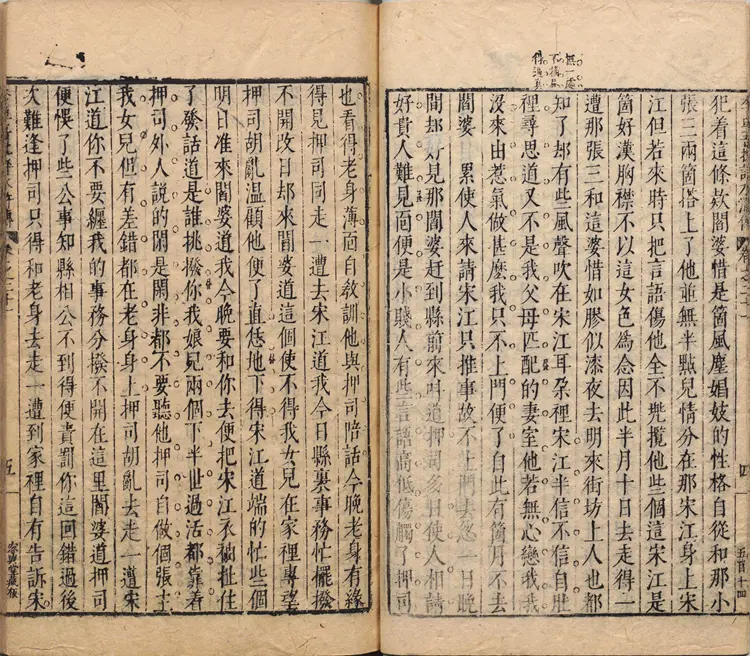 無一處
不描畫
得逼真
犯着這條欵閻婆惜是箇風塵娼妓的性格自從和那小
張三兩箇搭上了他並無半點兒情分在那宋江身上宋
江但若來時只把言語傷他全不兠攬他些個這宋江是
箇好漢胸襟不以這女色爲念因此半月十日去走得一
遭那張三和這婆惜如膠似漆夜去明來街坊上人也都
知了却有些風聲吹在宋江耳朶裡宋江半信不信自肚
裡尋思道又不是我父母匹配的妻室他若無心戀我我
沒來由惹氣做甚麼我只不上門便了自此有箇月不去
閻婆累使人來請宋江只推事故不上門去忽一日晚
間却好見那閻婆赶到縣前來呌道押司多日使人相請
好貴人難見面便是小賤人有些言語高低傷觸了押司
四
五百十四
也看得老身薄面自教訓他與押司陪話今晚老身有緣
得見押司同走一遭去宋江道我今日縣裏事務忙擺撥
不開改日却來閻婆道這個使不得我女兒在家裡專望
押司胡亂溫顧他便了直恁地下得宋江道端的忙些個
明日准來閻婆道我今晚要和你去便把宋江衣袖扯住
了發話道是誰挑撥你我娘兒兩個下半世過活都靠着
押司外人說的閑是閑非都不要聽他押司自做個張主
我女兒但有差錯都在老身身上押司胡亂去走一遭宋
江道你不要纏我的事務分撥不開在這里閻婆道押司
便悞了些公事知縣相公不到得便責罰你這回錯過後
次難逢押司只得和老身去走一遭到家裡自有告訴宋
五
容與堂藏板